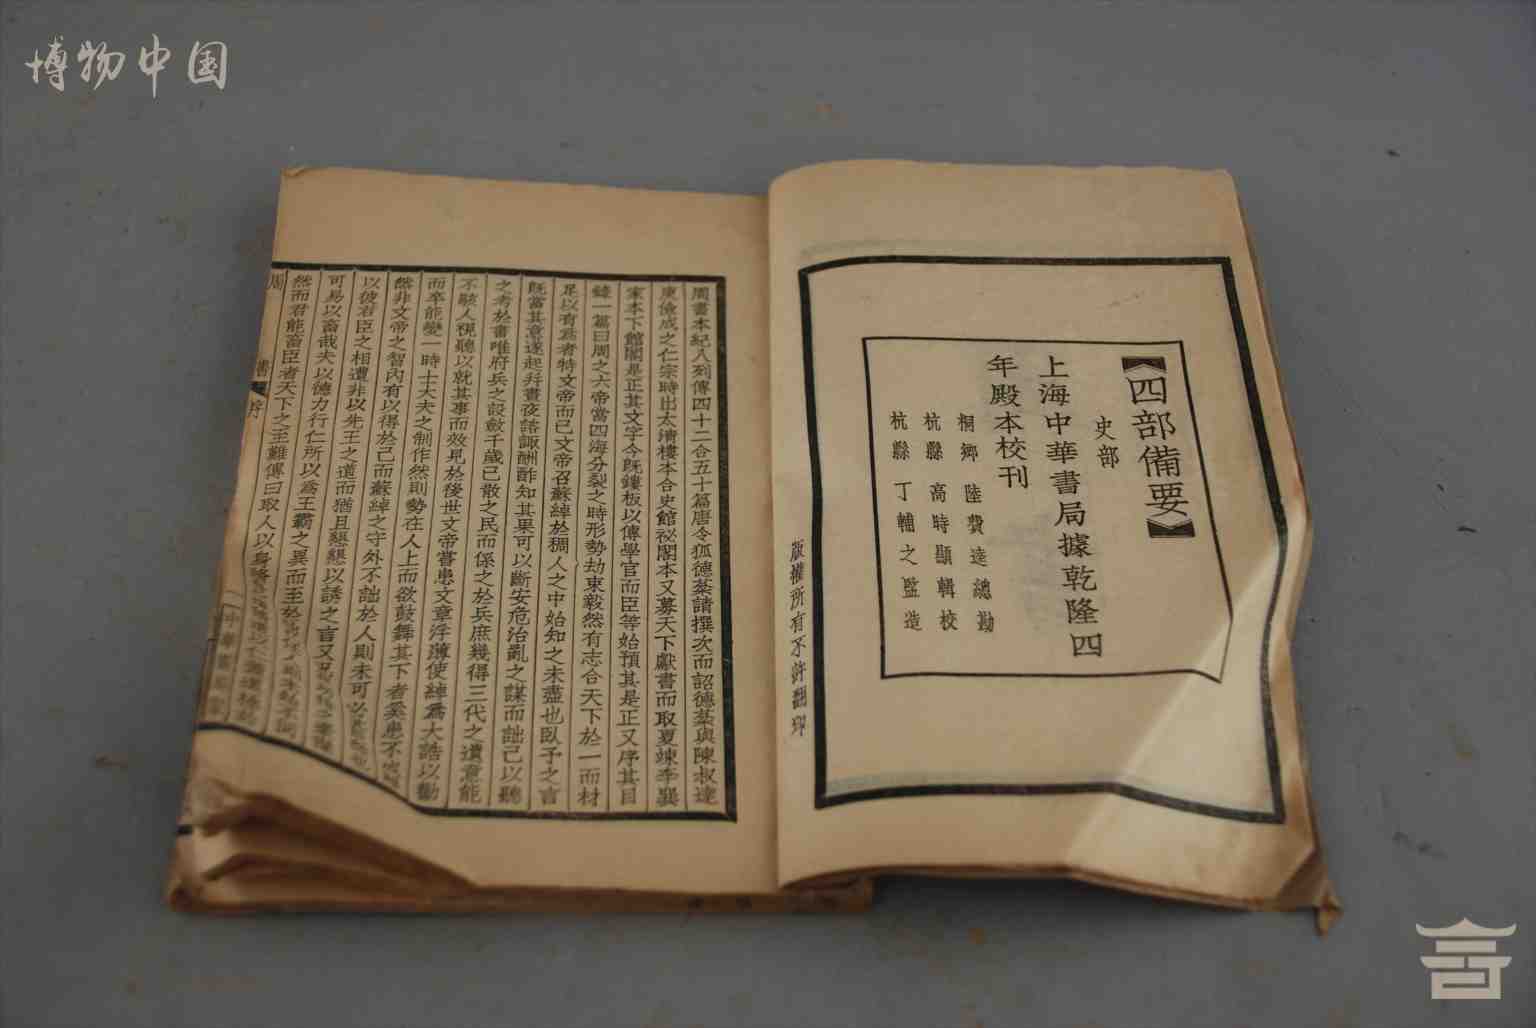 博物中国
四部備要
史部
上海中華書局據乾隆四
年殿本校刊
桐鄉 陸費逵總勘
杭縣 高時顯輯校
杭縣 丁輔之監造
版權所有不許翻印
周書本紀八列傳四十二合五十篇唐令狐德棻請撰次而詔德棻與陳叔達
庾儉成之仁宗時出太清樓本合史館祕閣本又募天下獻書而取夏竦李巽
家本下館閣是正其文字今既鏤板以傳學官而臣等始預其是正又序其目
錄一篇曰周之六帝當四海分裂之時形勢劫束毅然有志合天下於一而材
足以有爲者特文帝而已文帝召蘇綽於稠人之中始知之未盡也臥予之言
既當其意遂起幷晝夜諮諏酬酢知其果可以斷安危治亂之謀而詘己以聽
之考於書唯府兵之設斂千歲已散之民而係之於兵庶幾得三代之遺意能
不駭人視聽以就其事而效見於後世文帝嘗患文章浮薄使綽爲大誥以勸
而卒能變一時士大夫之制作然則勢在人上而欲鼓舞其下者奚患不
然非文帝之智內有以得於己而蘇綽之守外不詘於人則未可必
以彼君臣之相遭非以先王之道而猶且懇懇以誘之言又況
可易以畜哉夫以德力行仁所以爲王霸之異而至於
然而君能畜臣者天下之至難傳曰取人以身
周
書
序
一
中華書局